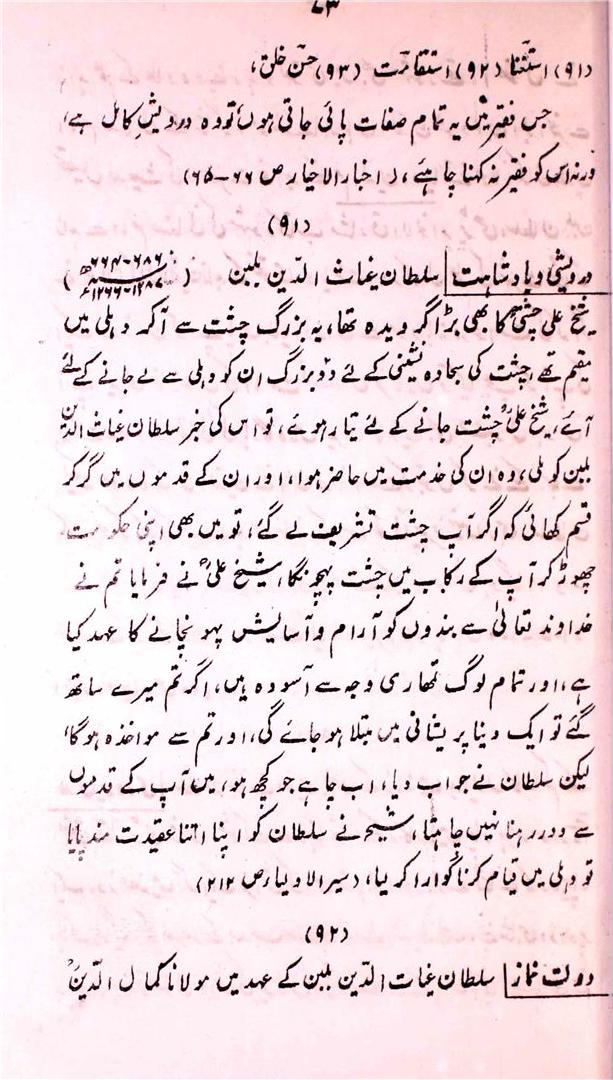 ۷۳
(۹۱) استثنا (۹۲) استقامت (۹۳) حسن خلق،
جس فقیر میں یہ تمام صفات پائی جاتی ہوں تو وہ درویش کامل ہے،
ورنہ اس کو فقیر نہ کہنا چاہئے، (اخبار الاخیار ص ۶۶-۶۵)
(۹۱)
درویشی و بادشاہت سلطان غیاث الدین بلبن (۶۸۶-۶۶۴ھ ۱۲۸۷-۱۲۶۶ء)
شیخ علی چشتیؒ کا بھی بڑا گرویدہ تھا، یہ بزرگ چشت سے آکر دہلی میں
مقیم تھے، چشت کی سجادہ نشینی کے لئے دو بزرگ ان کو دہلی سے لے جانے کے لئے
آئے، شیخ علیؒ چشت جانے کے لئے تیار ہوئے، تو اس کی خبر سلطان غیاث الدین
بلبن کو ملی، وہ ان کی خدمت میں حاضر ہوا، اور ان کے قدموں میں گر کر
قسم کھائی کہ اگر آپ چشت تشریف لے گئے، تو میں بھی اپنی حکومت
چھوڑ کر آپ کے رکاب میں چشت پہنچونگا، شیخ علیؒ نے فرمایا تم نے
خداوند تعالیٰ سے بندوں کو آرام و آسایش پہونچانے کا عہد کیا
ہے، اور تمام لوگ تمھاری وجہ سے آسودہ ہیں، اگر تم میرے ساتھ
گئے تو ایک دنیا پریشانی میں مبتلا ہو جائے گی، اور تم سے مواخذہ ہوگا،
لیکن سلطان نے جواب دیا، اب چاہے جو کچھ ہو، میں آپ کے قدموں
سے دور رہنا نہیں چاہتا، شیخ نے سلطان کو اپنا اتنا عقیدت مند پایا
تو دہلی میں قیام کرنا گوارا کر لیا، (سیر الاولیاء ص ۲۱۲)
(۹۲)
دولت نماز سلطان غیاث الدین بلبن کے عہد میں مولانا کمال الدینؒ